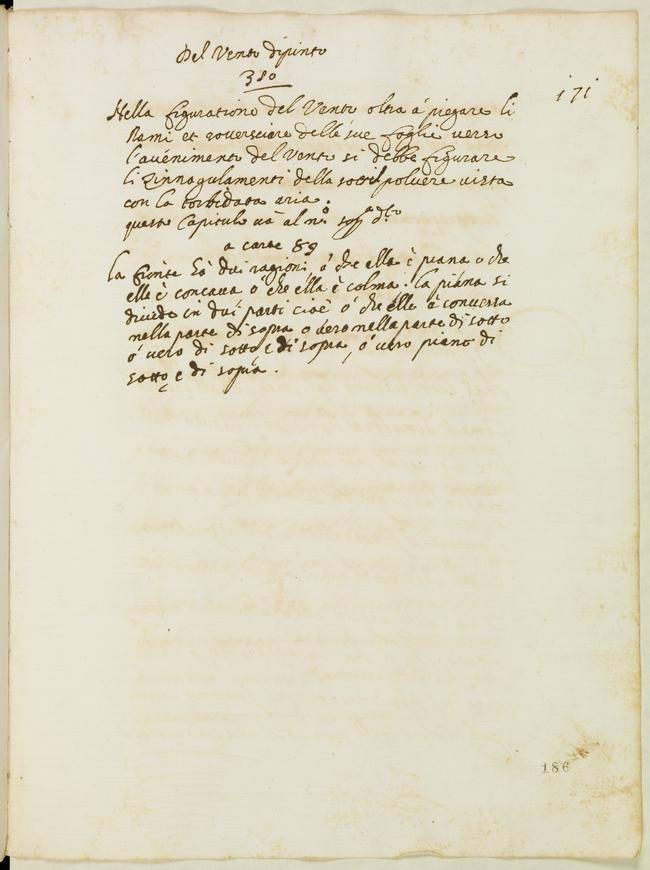 Del Vento dipinto
380
171
Nella figuratione del Vento oltra à piegare li
Rami et roversciare delle sue foglie verso
l'auenimento del Vento si debbe figurare
li Rinnagulamenti della sottil poluere mista
con la torbidata aria.
questo Capitulo uà al nº
a carte 89
la fronte hà dui ragioni ò che ella è piana o che
elle è concaua ò che ella è colma. la piana si
diuide in dui parti cioè ò che elle à conuersa
nella parte di sopra o uero nella parte di sotto
ò uero di sotto e di sopra, ò uero piano di
sotto e di sopra.
186